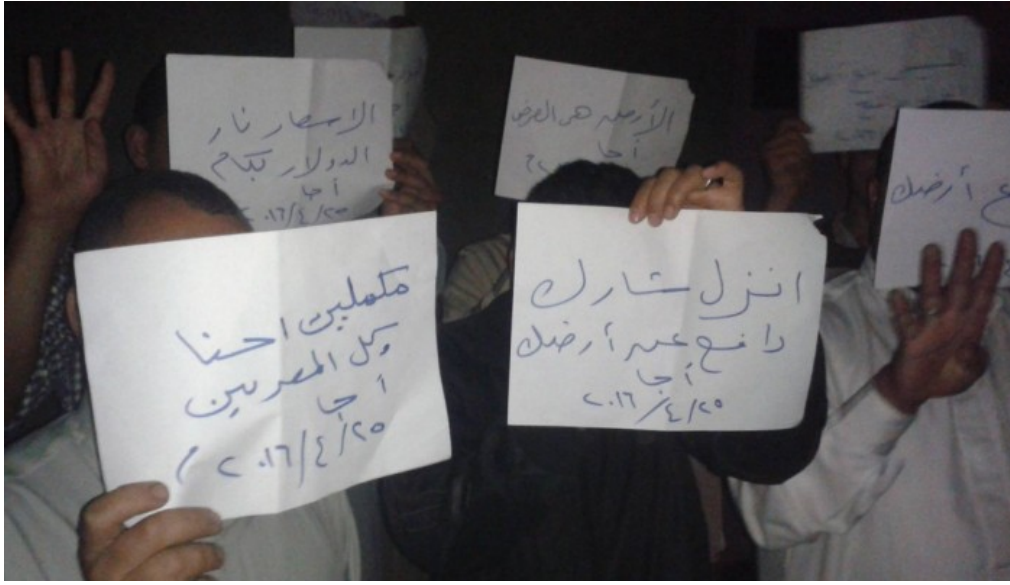 الاسعار نار
الدولار بكام
أجا
٢٠١٦/٤/٢٥
الأرض هى العرض
أجا
أرضك
مكملين احنا
وكل المصريين
أجا
٢٠١٦/٤/٢٥
انزل شارك
دافع عن أرضك
أجا
٢٠١٦/٤/٢٥